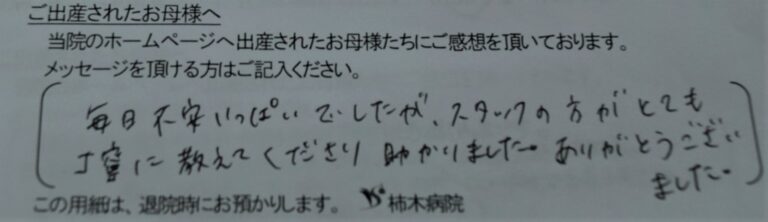 ご出産されたお母様へ
当院のホームページへ出産されたお母様たちにご感想を頂いております。
メッセージを頂ける方はご記入ください。
毎日不安いっぱいでしたが、スタッフの方がとても
丁寧に教えてくださり助かりました。ありがとうござい
ました。
この用紙は、退院時にお預かりします。 柿木病院